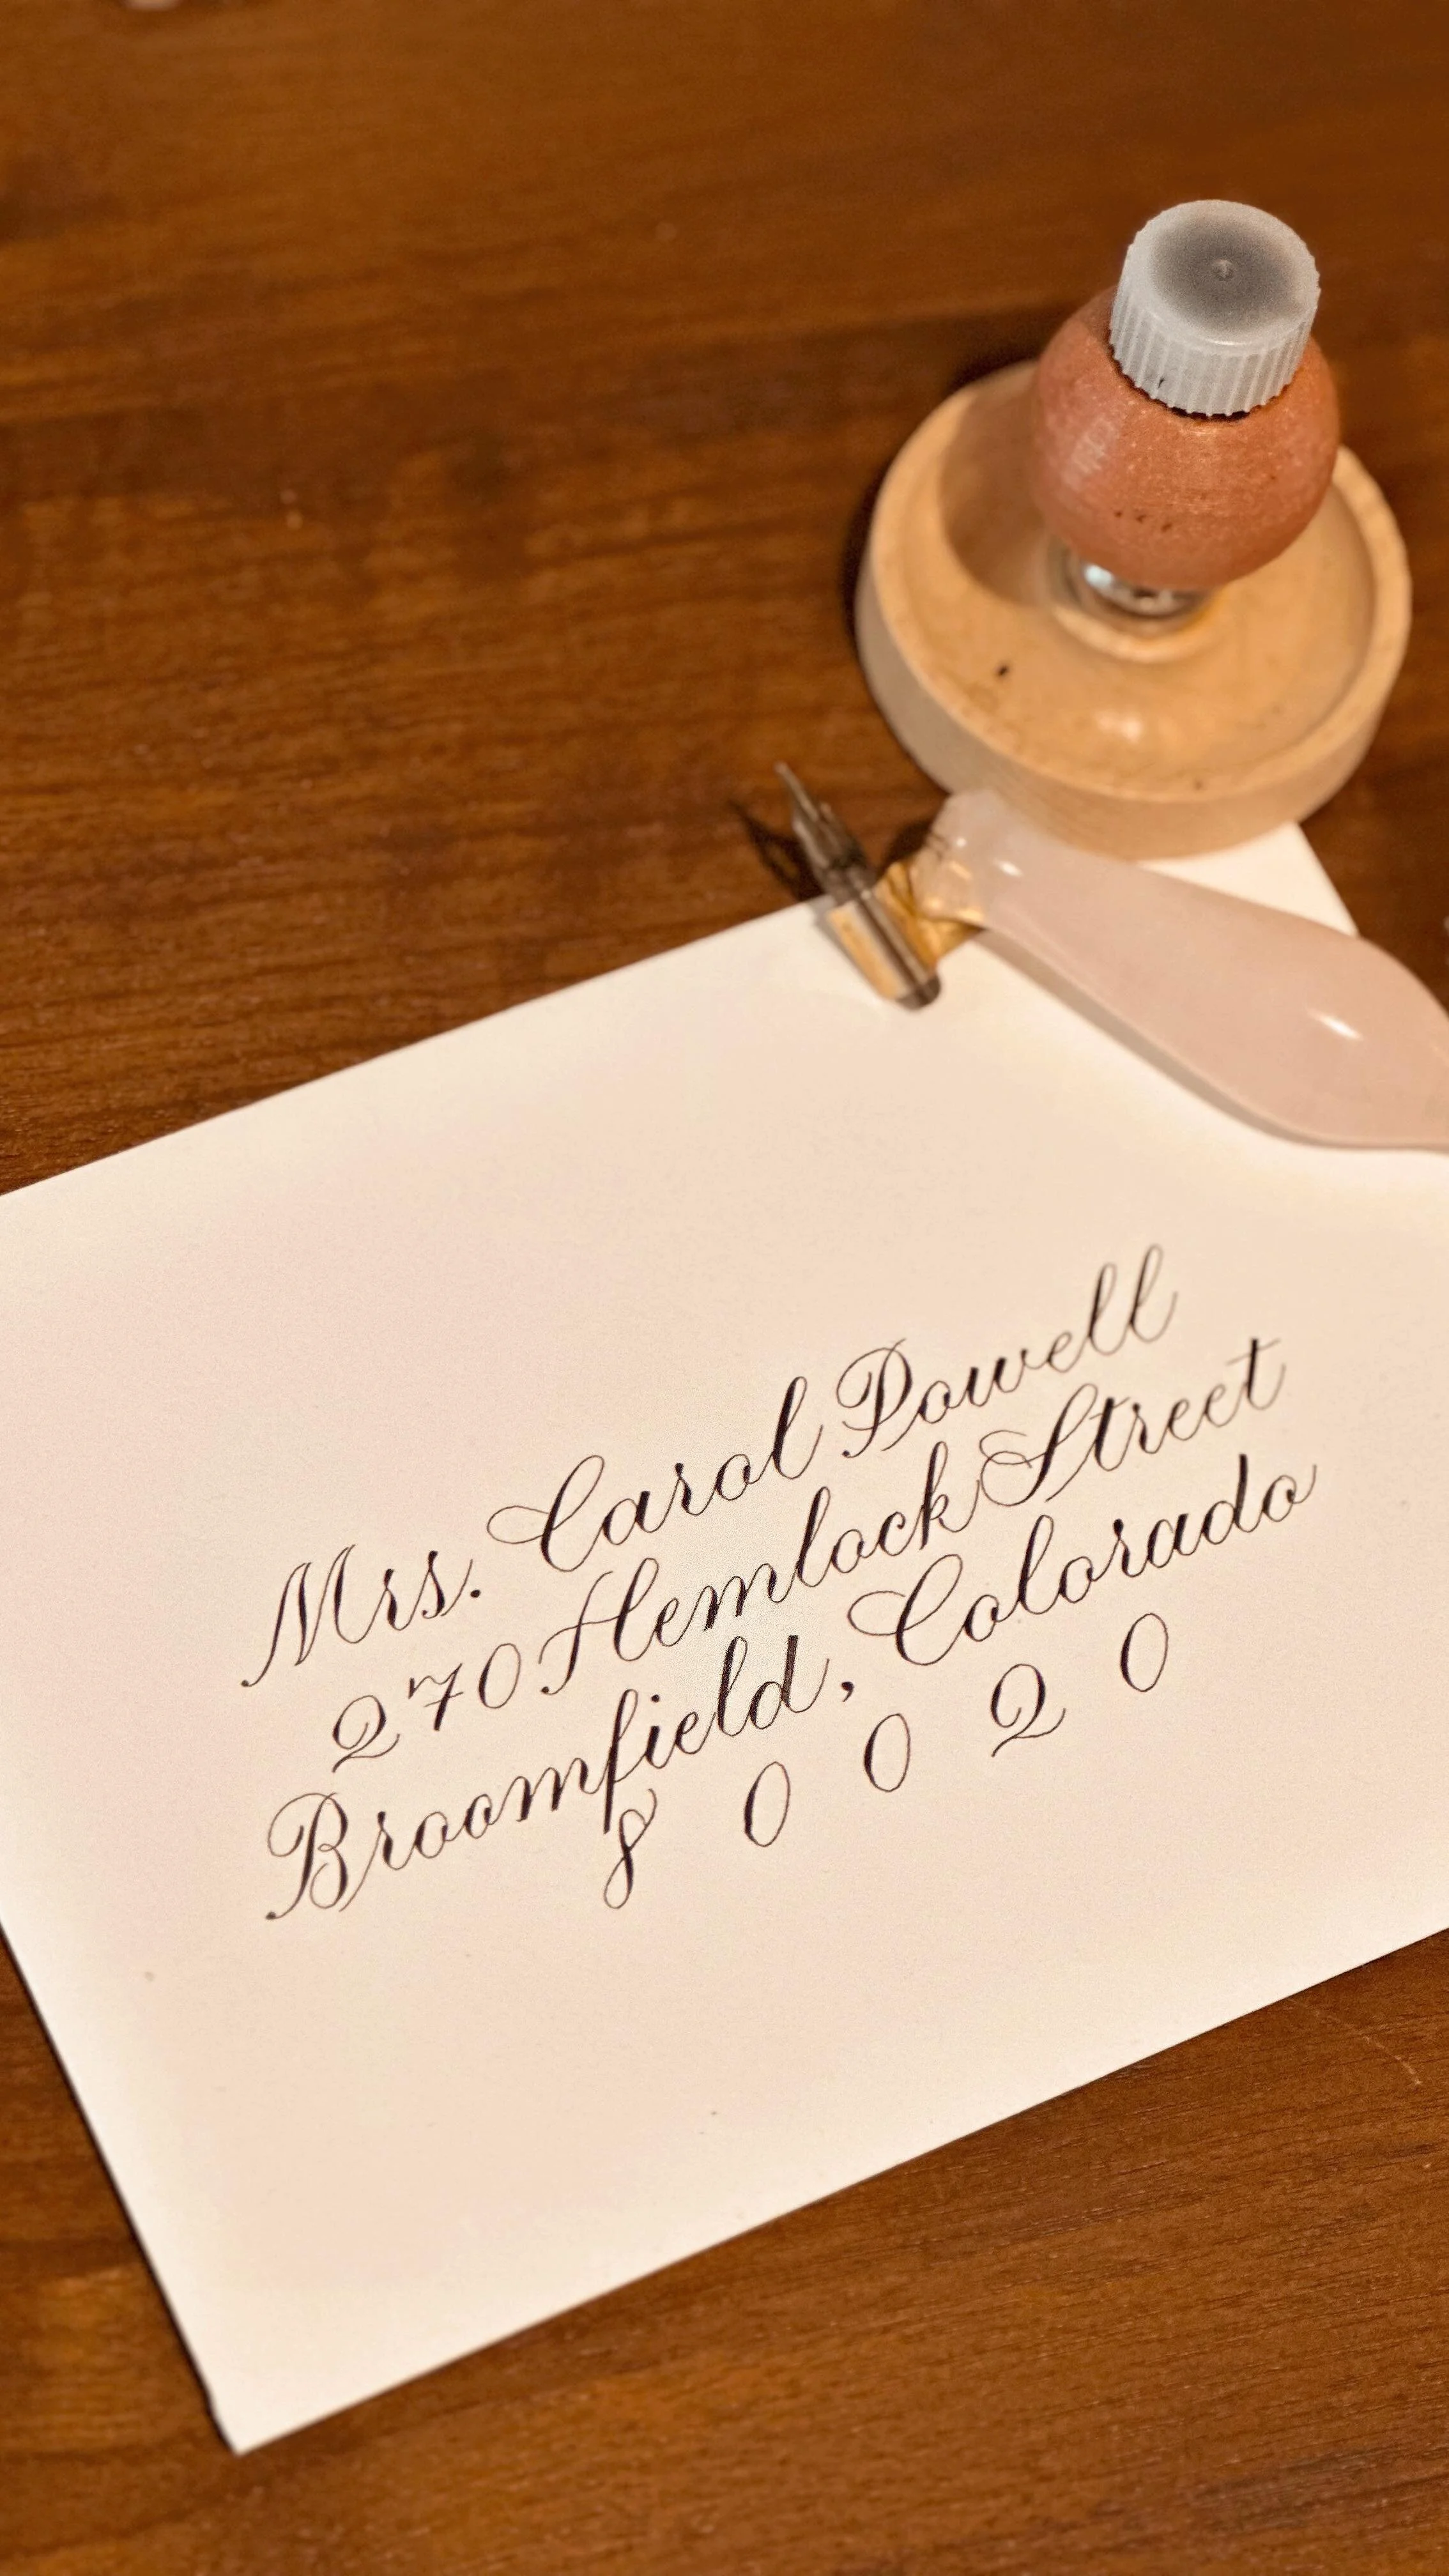 Mrs. Carol Powell
270 Hemlock Street
Broomfield, Colorado
8 0 0 2 0